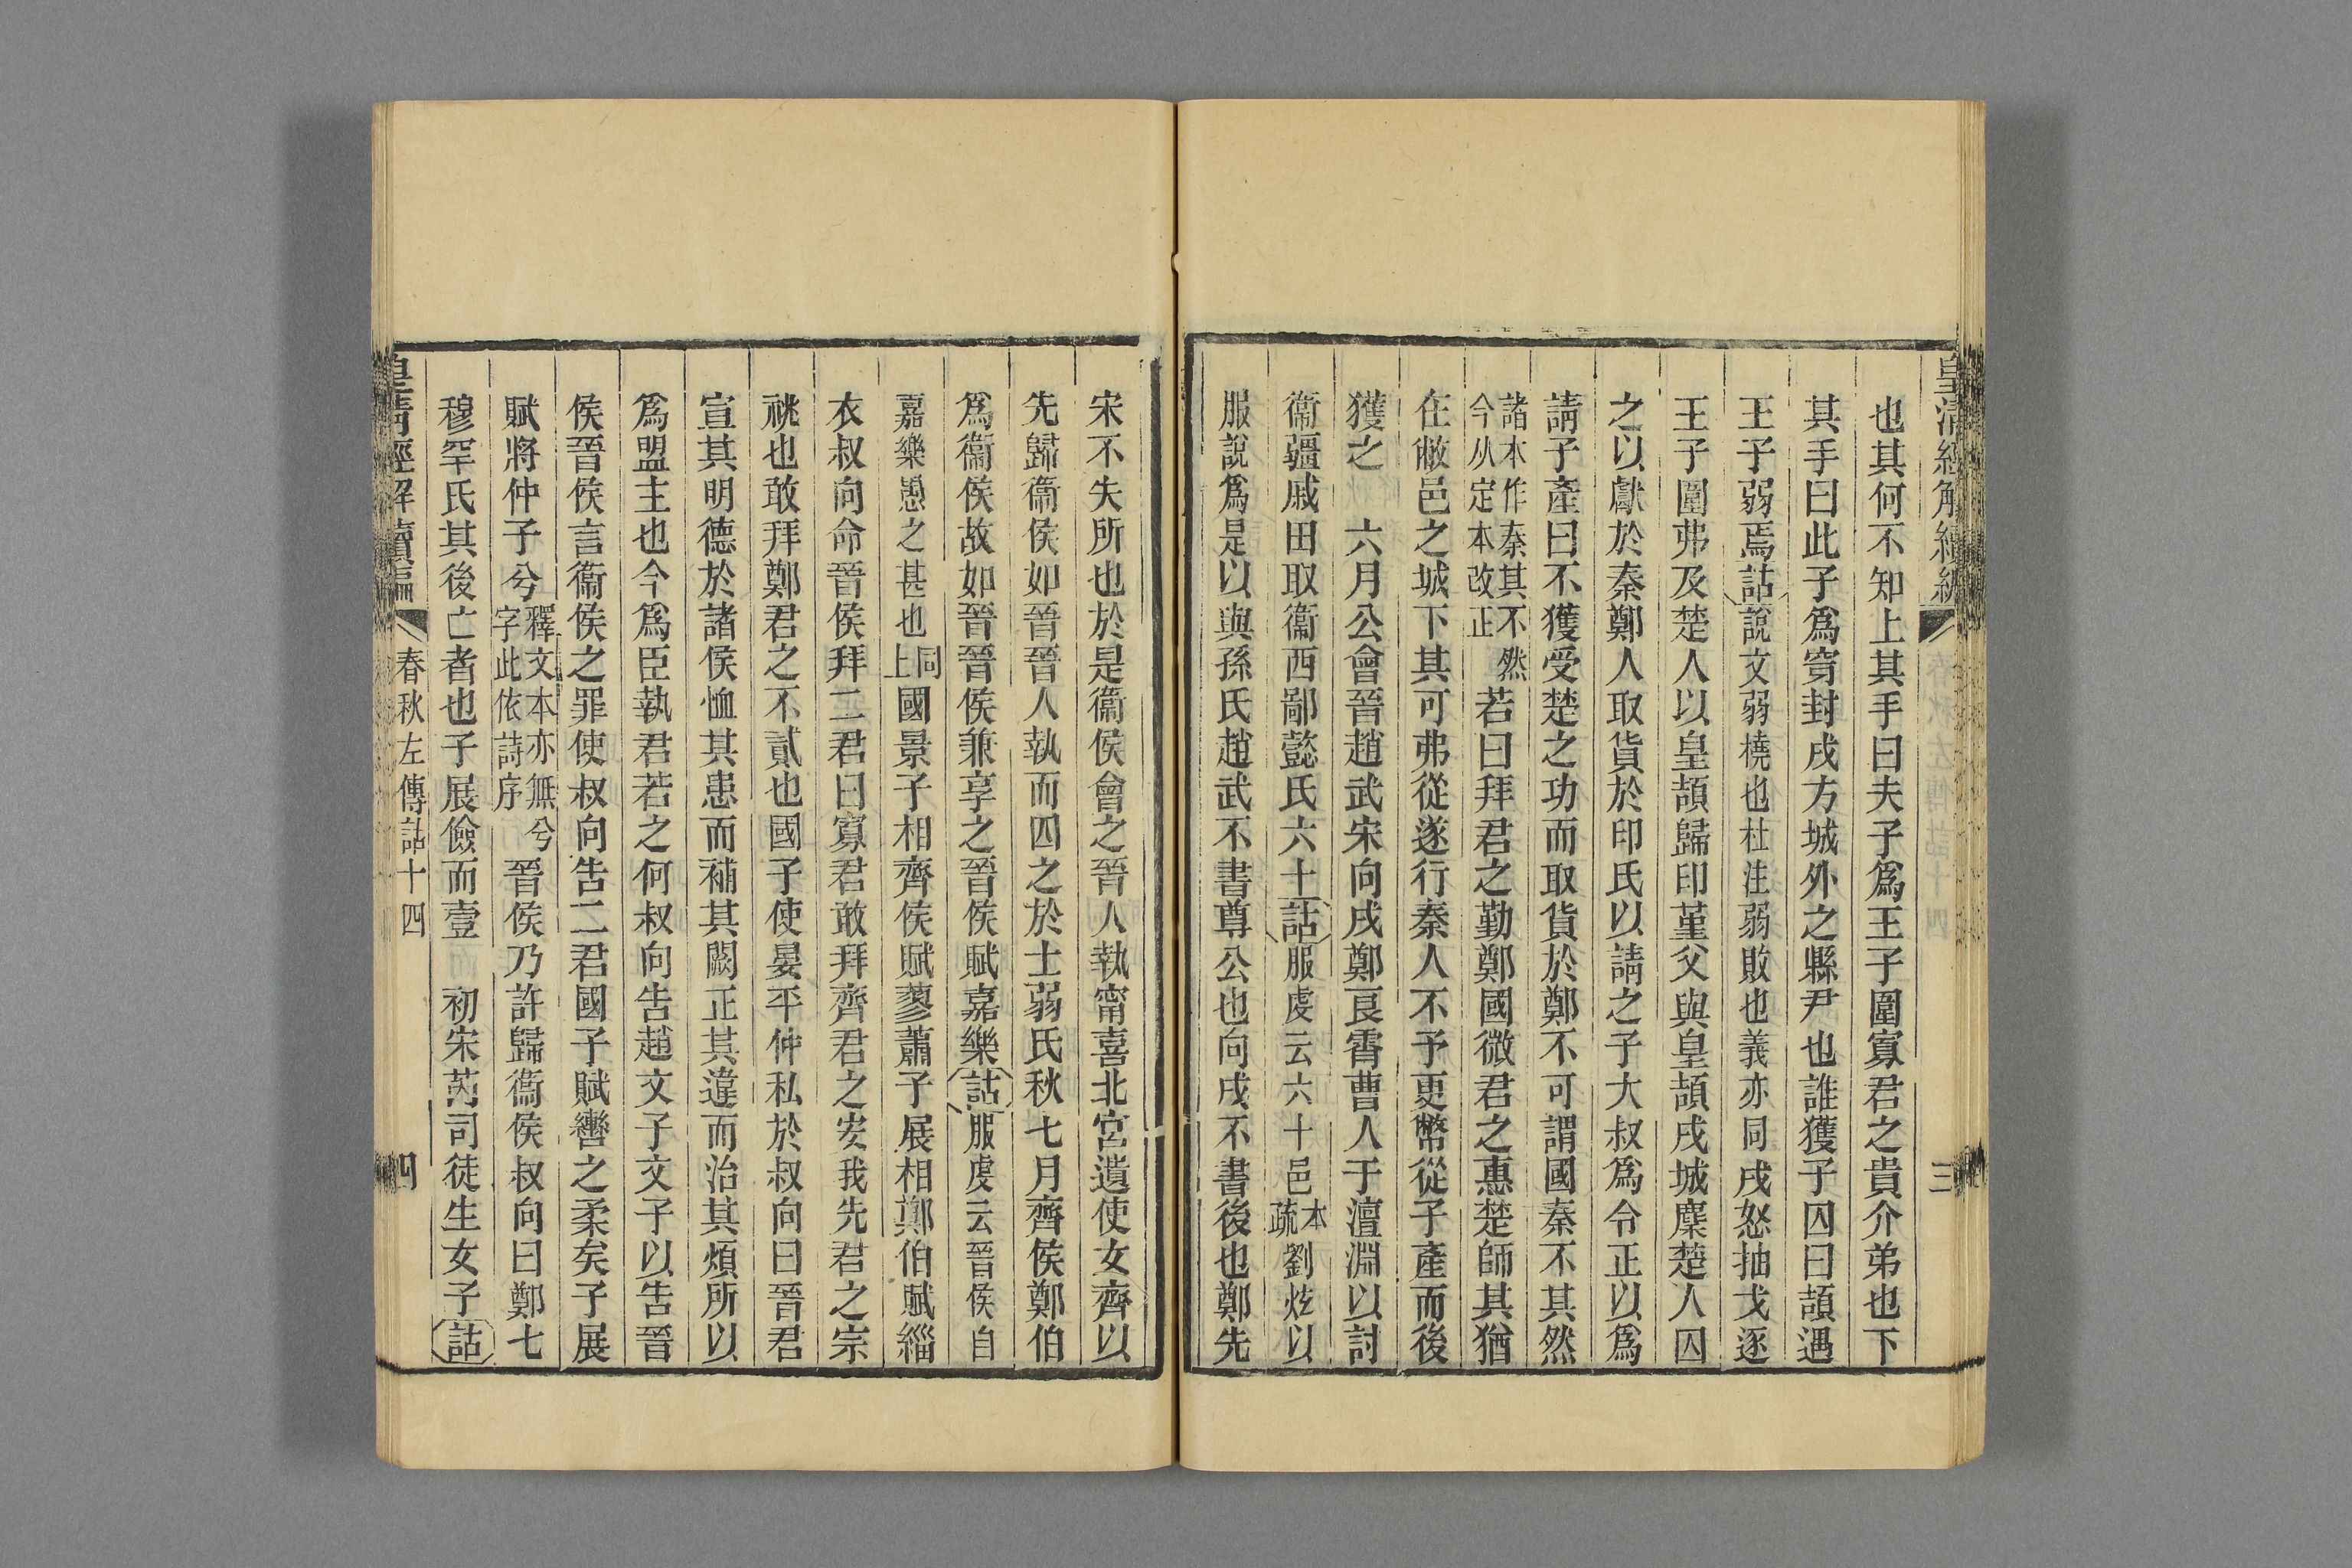 皇清經解續編
三
也其何不知上其手曰夫子爲王子圍寡君之貴介弟也下
其手曰此子爲穿封戌方城外之縣尹也誰獲子囚曰頡遇
王子弱焉詁說文弱橈也杜注弱敗也義亦同戌怒抽戈逐
王子圍弗及楚人以皇頡歸印堇父與皇頡戌城麇楚人囚
之以獻於秦鄭人取貨於印氏以請之子大叔爲令正以爲
請子產曰不獲受楚之功而取貨於鄭不可謂國秦不其然
諸本作秦其不然今从定本改正若曰拜君之勤鄭國微君之惠楚師其猶
在敝邑之城下其可弗從遂行秦人不予更幣從子產而後
獲之　六月公會晉趙武宋向戌鄭良霄曹人于澶淵以討
衞疆戚田取衞西鄙懿氏六十詁服虔云六十邑本疏劉炫以
服說爲是以與孫氏趙武不書尊公也向戌不書後也鄭先
宋不失所也於是衞侯會之晉人執甯喜北宮遺使女齊以
先歸衞侯如晉晉人執而囚之於士弱氏秋七月齊侯鄭伯
爲衞侯故如晉晉侯兼享之晉侯賦嘉樂詁服虔云晉侯自
嘉樂愚之甚也同上國景子相齊侯賦蓼蕭子展相鄭伯賦緇
衣叔向命晉侯拜二君曰寡君敢拜齊君之安我先君之宗
祧也敢拜鄭君之不貳也國子使晏平仲私於叔向曰晉君
宣其明德於諸侯恤其患而補其闕正其違而治其煩所以
爲盟主也今爲臣執君若之何叔向告趙文子文子以告晉
侯晉侯言衞侯之罪使叔向告二君國子賦轡之柔矣子展
賦將仲子兮釋文本亦無兮字此依詩序晉侯乃許歸衞侯叔向曰鄭七
穆罕氏其後亡者也子展儉而壹　初宋芮司徒生女子詁
皇清經解續編　春秋左傳詁十四
四